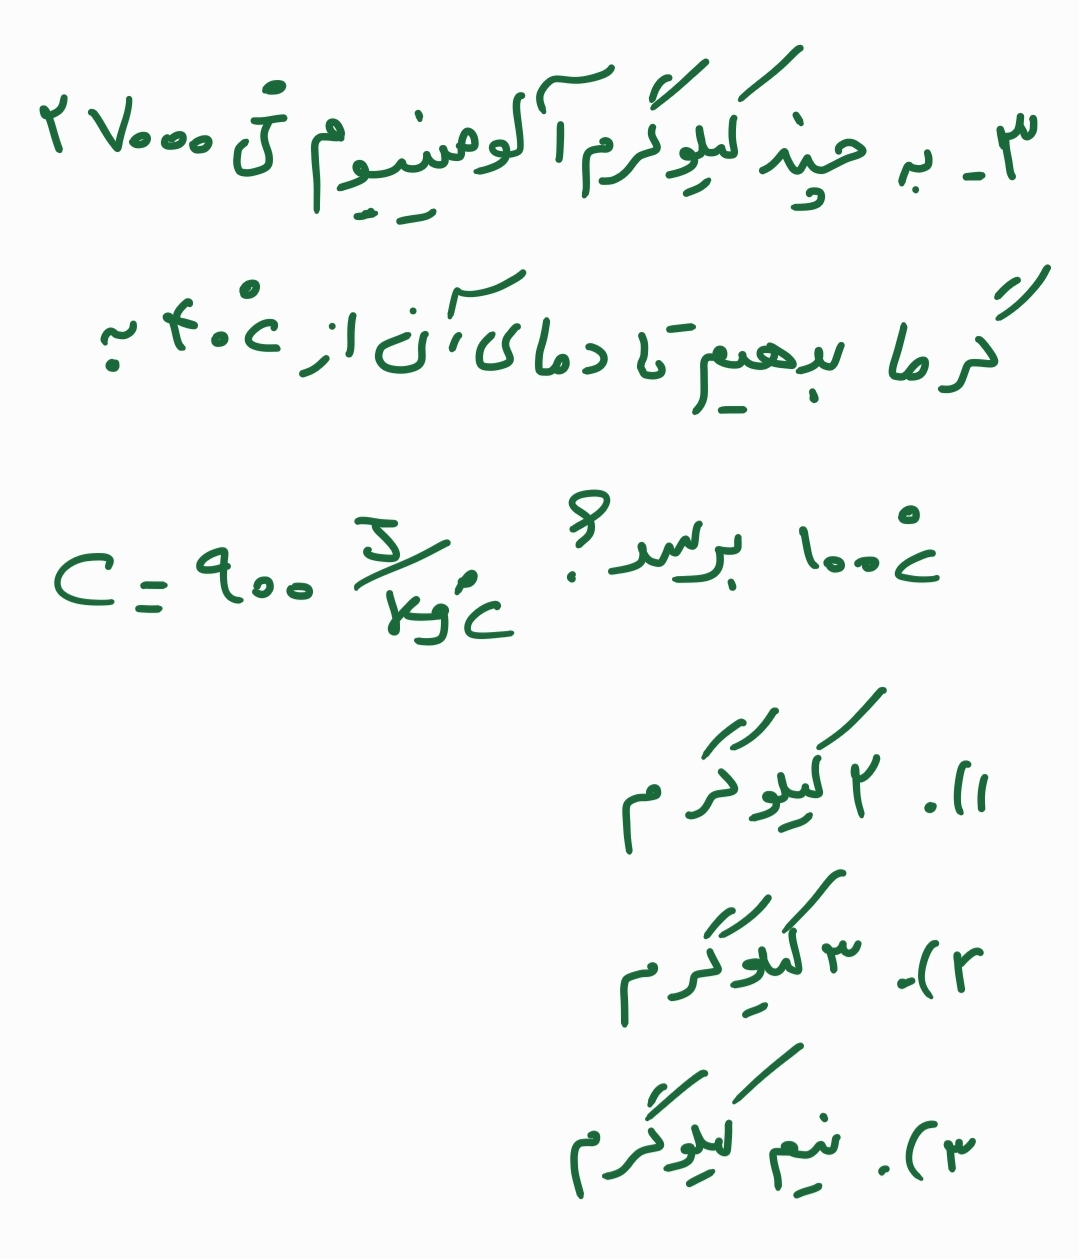 ۳- به چند کیلوگرم آلومنیوم ق ۲۷۰۰۰
گرما بدهیم تا دمای آن از ۴۰°C به
۱۰۰°C برسد؟ C = ۹۰۰ J/kg°C
۱). ۲ کیلوگرم
۲)- ۳ کیلوگرم
۳). نیم کیلوگرم